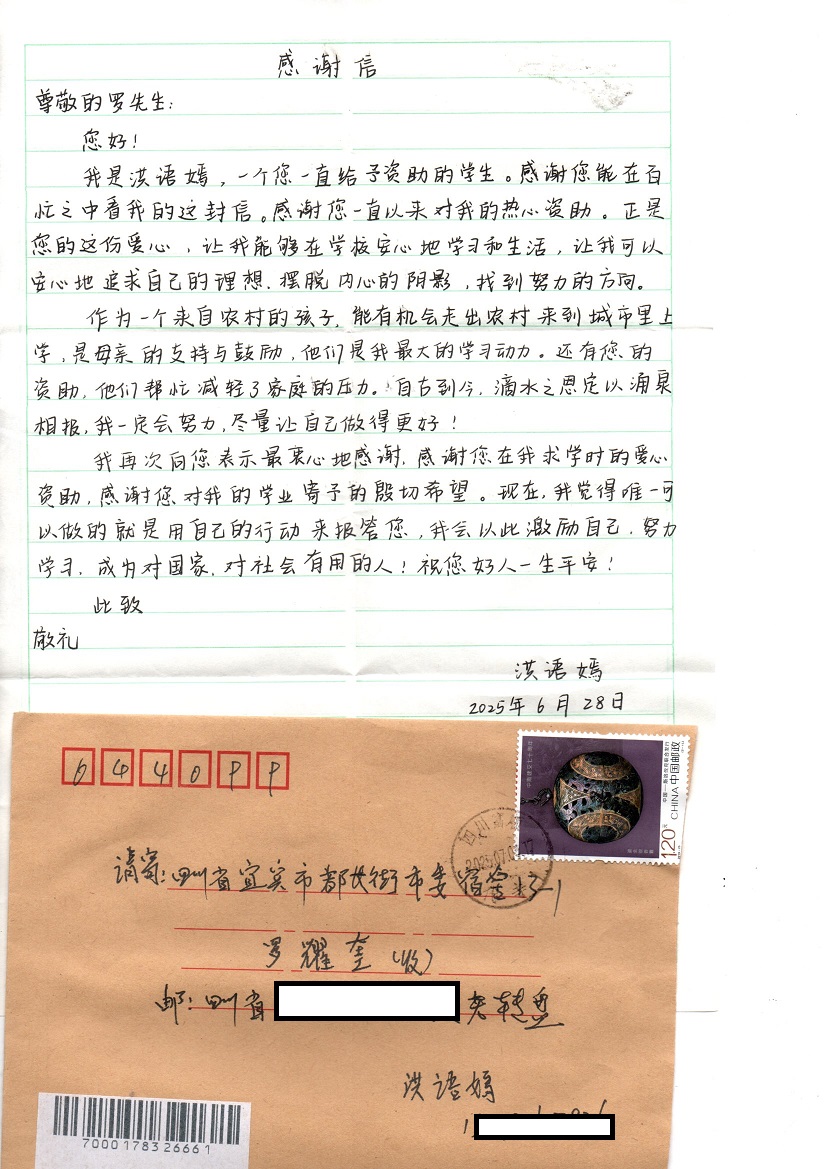 感谢信
尊敬的罗先生:
您好!
我是洪语嫣,一个您一直给予资助的学生。感谢您能在百
忙之中看我的这封信。感谢您一直以来对我的热心资助。正是
您的这份爱心,让我能够在学校安心地学习和生活,让我可以
安心地追求自己的理想、摆脱内心的阴影,找到努力的方向。
作为一个来自农村的孩子,能有机会走出农村来到城市里上
学,是母亲的支持与鼓励,他们是我最大的学习动力。还有您的
资助,他们帮忙减轻了家庭的压力。自古到今,滴水之恩定以涌泉
相报,我一定会努力,尽量让自己做得更好!
我再次向您表示最衷心地感谢,感谢您在我求学时的爱心
资助,感谢您对我的学业寄予的殷切希望。现在,我觉得唯一可
以做的就是用自己的行动来报答您,我会以此激励自己,努力
学习,成为对国家、对社会有用的人!祝您好人一生平安!
此致
敬礼
洪语嫣
2025年6月28日
644099
中国邮政
CHINA
120分
四川
2025.07.03.17
请寄:四川省宜宾市都长街市委宿舍13-1
罗耀奎(收)
邮:四川省
老转盘
洪语嫣
7000178326661